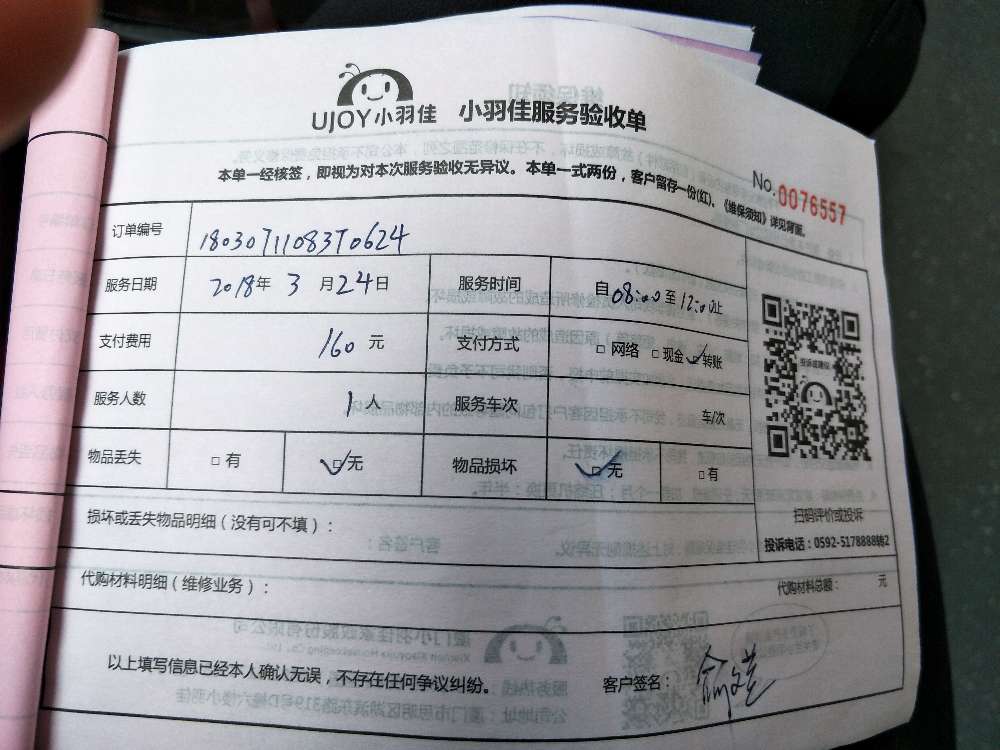 UJOY小羽佳 小羽佳服务验收单
本单一经核签，即视为对本次服务验收无异议。本单一式两份，客户留存一份(红)。《维保须知》详见背面。
No.0076557
订单编号 1803071108370624
服务日期 2018年 3 月 24 日 服务时间 自 08:00 至 12:00 止
支付费用 160 元 支付方式 □ 网络 □ 现金 ✓□ 转账
服务人数 1 人 服务车次 车/次
物品丢失 □ 有 ✓□ 无 物品损坏 ✓□ 无 □ 有
投诉或建议
扫码评价或投诉
投诉电话：0592-5178888转2
损坏或丢失物品明细（没有可不填）：
代购材料明细（维修业务）： 代购材料总额： 元
以上填写信息已经本人确认无误，不存在任何争议纠纷。 客户签名：